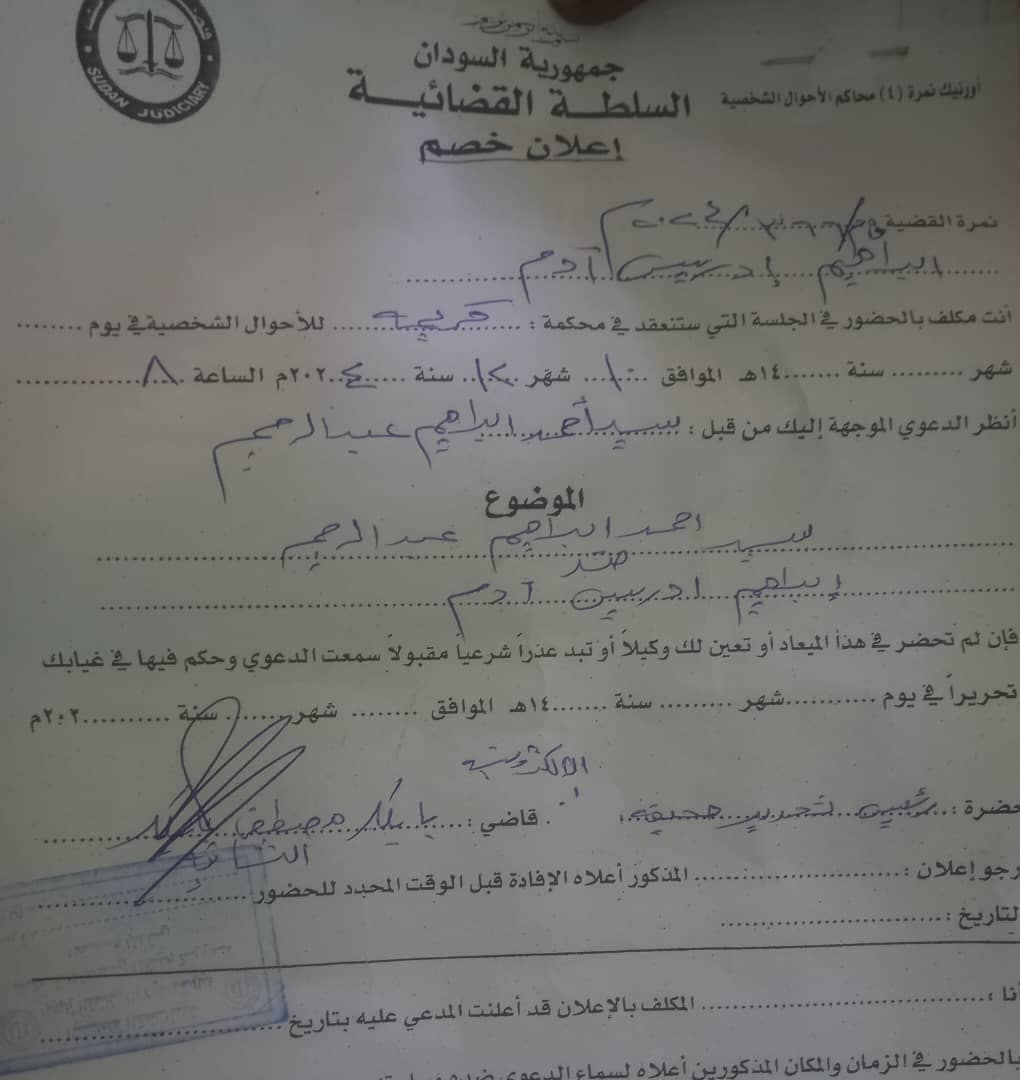 SUDAN JUDICIARY
جمهورية السودان
أورنيك نمرة (٤) محاكم الأحوال الشخصية
السلطة القضائية
إعلان خصم
نمرة القضية
ابراهيم إدريس آدم
أنت مكلف بالحضور في الجلسة التي ستنعقد في محكمة : ........ للأحوال الشخصية في يوم ........
شهر ......... سنة .......١٤هـ الموافق ..١٠.. شهر ..١٢.. سنة ..٢٠٢٤م الساعة ٨ ........
أنظر الدعوي الموجهة إليك من قبل : سيد أحمد ابراهيم عبد الرحيم
الموضوع
سيد احمد ابراهيم عبد الرحيم
ضد
إبراهيم ادريس آدم
فإن لم تحضر في هذا الميعاد أو تعين لك وكيلاً أو تبد عذراً شرعياً مقبولاً سمعت الدعوي وحكم فيها في غيابك
تحريراً في يوم ...........شهر ......... سنة .......١٤هـ الموافق ........ شهر ........ سنة ..........٢٠٢م
الالكترونية
حضرة : رئيس تحرير صحيفة قاضي : بابكر مصطفى
الثانية
رجو إعلان : .......................... المذكور أعلاه الإفادة قبل الوقت المحدد للحضور ..........................
لتاريخ : ............................
أنا : ................................... المكلف بالإعلان قد أعلنت المدعي عليه بتاريخ ................................
بالحضور في الزمان والمكان المذكورين أعلاه لسماع الدعوي